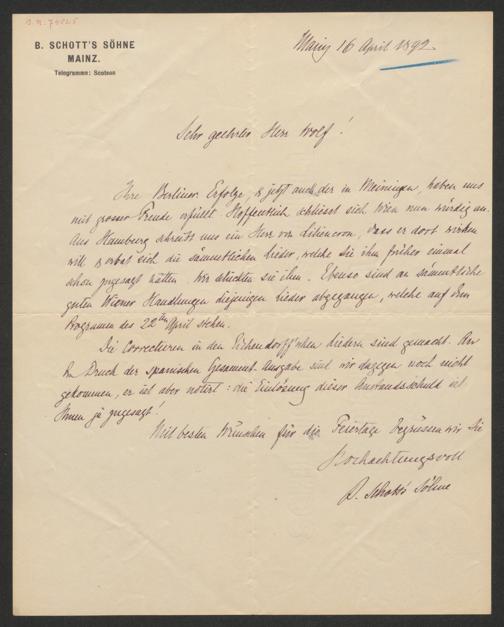 B. SCHOTT'S SÖHNE
MAINZ.
Telegramme: Scotson
Mainz 16 April 1892
Sehr geehrter Herr Wolf!
Ihre Berliner Erfolge, & jetzt auch der in Meiningen, haben uns
mit grosser Freude erfüllt. Hoffentlich schliesst sich Wien nun würdig an.
Aus Hamburg schreibt uns ein Herr von Liliencron, dass er dort wirken
will & erbat sich die sämmtlichen Lieder, welche Sie ihm früher einmal
schon zugesagt hätten. Wir schickten sie ihm. Ebenso sind an sämmtliche
guten Wiener Handlungen diejenigen Lieder abgegangen, welche auf dem
Programm des 22ten April stehen.
Die Correcturen in den Eichendorff'schen Liedern sind gemacht. An
den Druck der spanischen Gesammt-Ausgabe sind wir dagegen noch nicht
gekommen, er ist aber notirt: die Einlösung dieser Anstandsschuld ist
Ihnen ja zugesagt!
Mit besten Wünschen für die Feiertage begrüssen wir Sie
Hochachtungsvoll
B. Schott's Söhne